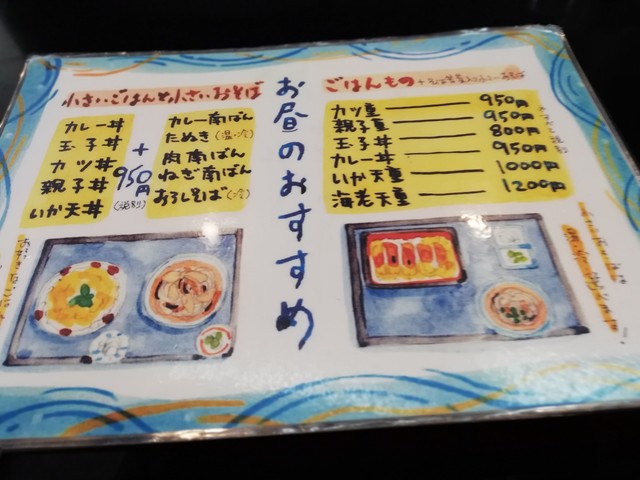 お昼のおすすめ
小さいごはんと小さいおそば
カレー丼
玉子丼
カツ丼
親子丼
いか天丼
+
950円
カレー南ばん
たぬき(温・冷)
肉南ばん
ねぎ南ばん
おろしそば(冷)
ごはんもの
カツ重 950円
親子重 950円
玉子丼 800円
カレー丼 950円
いか天重 1000円
海老天重 1200円